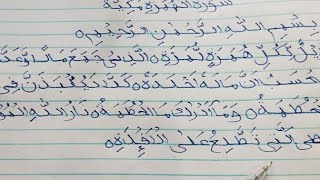 سُورَةُ الْهُمَزَةِ مَكِّيَّةٌ
بِسْمِ اللّٰهِ الرَّحْمٰنِ الرَّحِيْمِ ○
يْلٌ لِّكُلِّ هُمَزَةٍ لُّمَزَةٍ ○ الَّذِيْ جَمَعَ مَالًا وَّعَدَّ
يَحْسَبُ اَنَّ مَالَهٗ اَخْلَدَهٗ ○ كَلَّا لَيُنْۢبَذَنَّ فِى
لْحُطَمَةِ ○ وَمَآ اَدْرٰىكَ مَا الْحُطَمَةُ ○ نَارُ اللّٰهِ الْمُوْ
الَّتِيْ تَطَّلِعُ عَلَى الْاَفْئِدَةِ ○